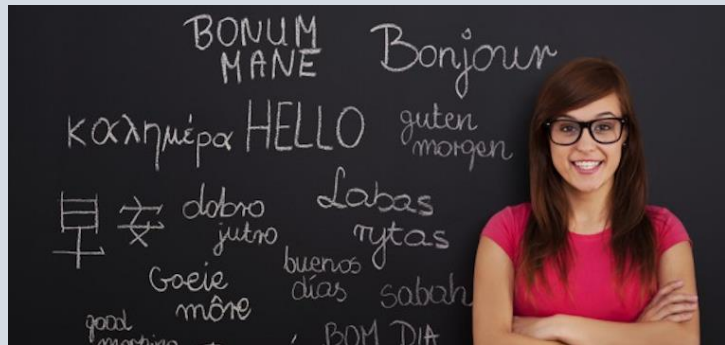 BONUM
MANE
Bonjour
καλημέρα HELLO
guten
morgen
早安
dobro
jutro
Labas
rytas
Goeie
môre
buenos
días
sabah
good
morning
BOM DIA